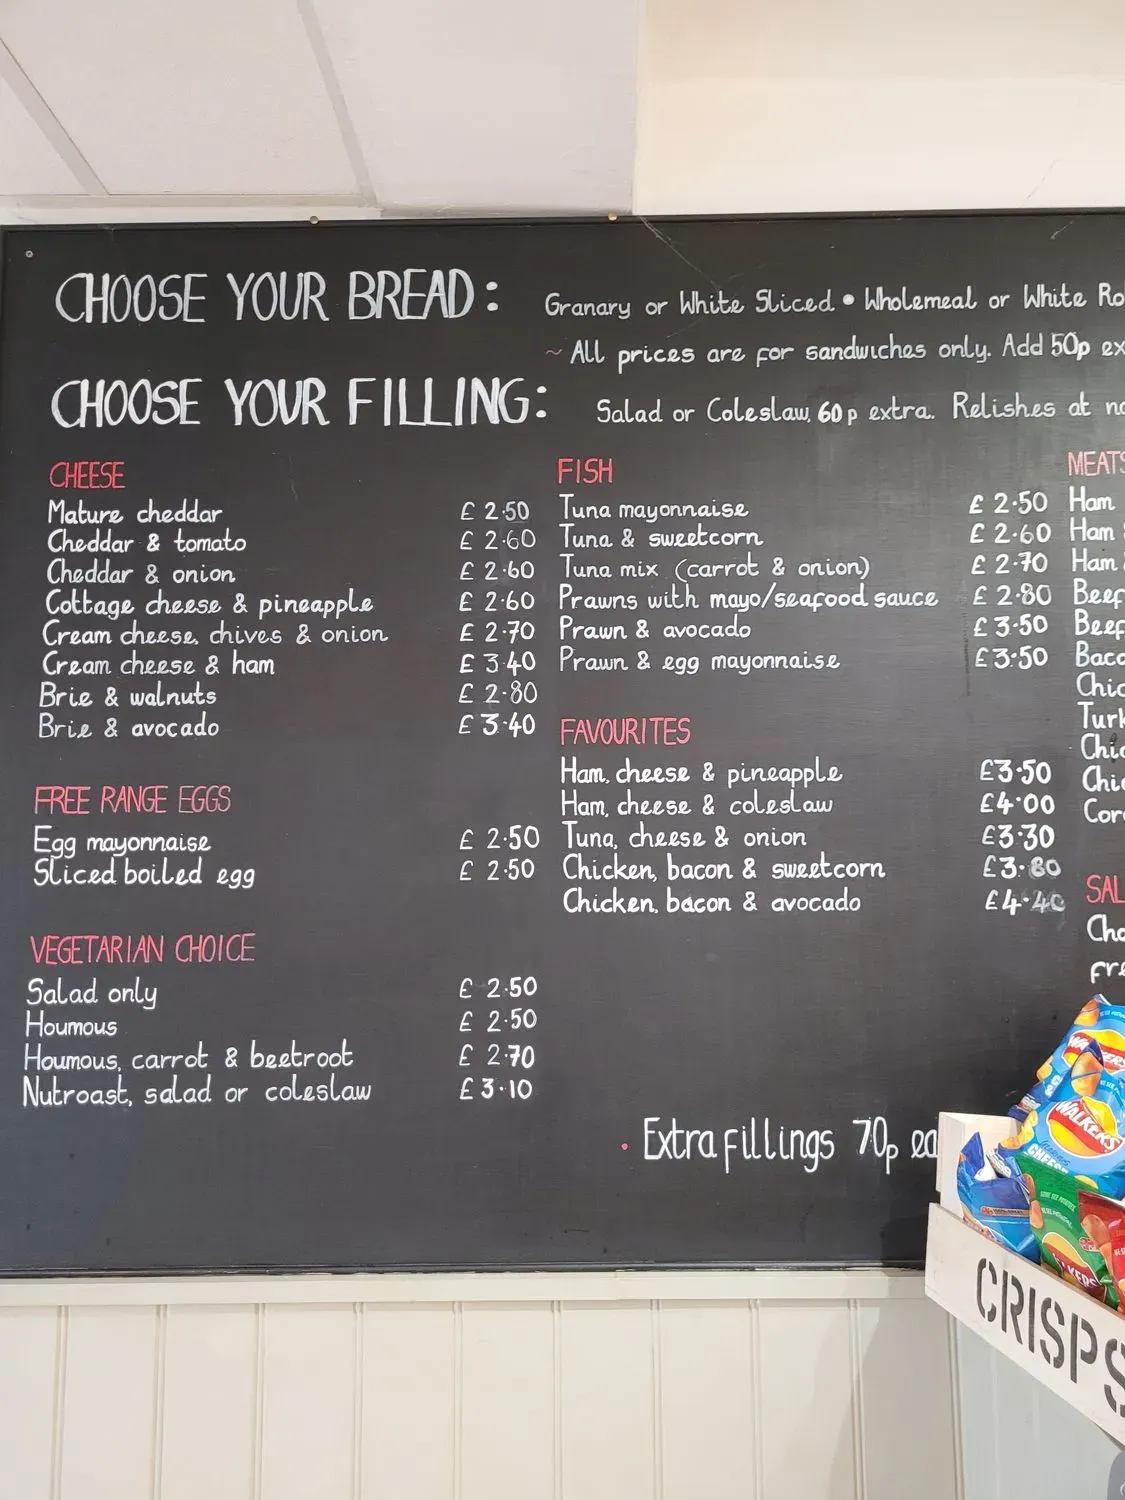 CHOOSE YOUR BREAD:
Granary or White Sliced • Wholemeal or White Ro
~ All prices are for sandwiches only. Add 50p ex
CHOOSE YOUR FILLING:
Salad or Coleslaw, 60p extra. Relishes at no
CHEESE
Mature cheddar £2.50
Cheddar & tomato £2.60
Cheddar & onion £2.60
Cottage cheese & pineapple £2.60
Cream cheese, chives & onion £2.70
Cream cheese & ham £3.40
Brie & walnuts £2.80
Brie & avocado £3.40
FREE RANGE EGGS
Egg mayonnaise £2.50
Sliced boiled egg £2.50
VEGETARIAN CHOICE
Salad only £2.50
Houmous £2.50
Houmous, carrot & beetroot £2.70
Nutroast, salad or coleslaw £3.10
FISH
Tuna mayonnaise £2.50
Tuna & sweetcorn £2.60
Tuna mix (carrot & onion) £2.70
Prawns with mayo/seafood sauce £2.80
Prawn & avocado £3.50
Prawn & egg mayonnaise £3.50
FAVOURITES
Ham, cheese & pineapple £3.50
Ham, cheese & coleslaw £4.00
Tuna, cheese & onion £3.30
Chicken, bacon & sweetcorn £3.80
Chicken, bacon & avocado £4.40
• Extra fillings 70p ea
MEATS
Ham
Ham &
Ham &
Beef
Beef
Baco
Chic
Turk
Chic
Chic
Coro
SAL
Cho
fre
WALKERS
WALKERS
CHEESE
CRISPS